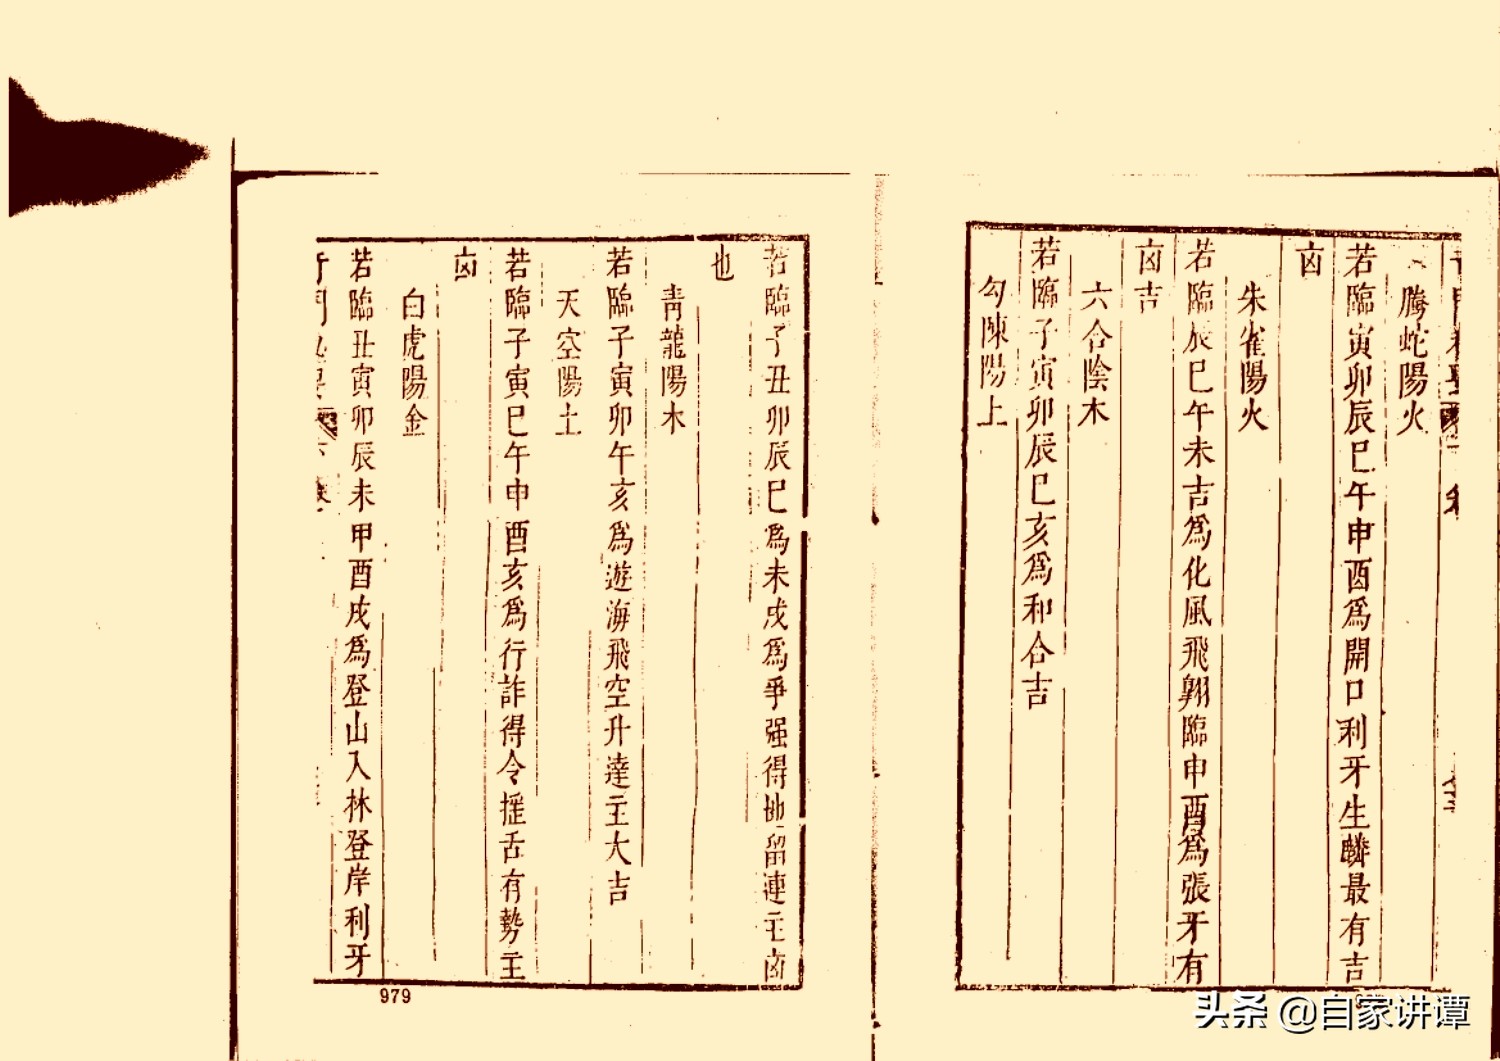 騰蛇陽火
若臨寅卯辰巳午申酉爲開口利牙生麟最有吉
㐫
朱雀陽火
若臨辰巳午未吉爲化風飛翔臨申酉爲張牙有
㐫吉
六合陰木
若臨子寅卯辰巳亥爲和合吉
勾陳陽土
若臨子丑卯辰巳爲未戌爲爭强得地留連主㐫
也
青龍陽木
若臨子寅卯午亥爲遊海飛空升達主大吉
天空陽土
若臨子寅巳午申酉亥爲行詐得令搖舌有勢主
㐫
白虎陽金
若臨丑寅卯辰未甲酉戌爲登山入林登岸利牙
979
头条 @自家讲谭